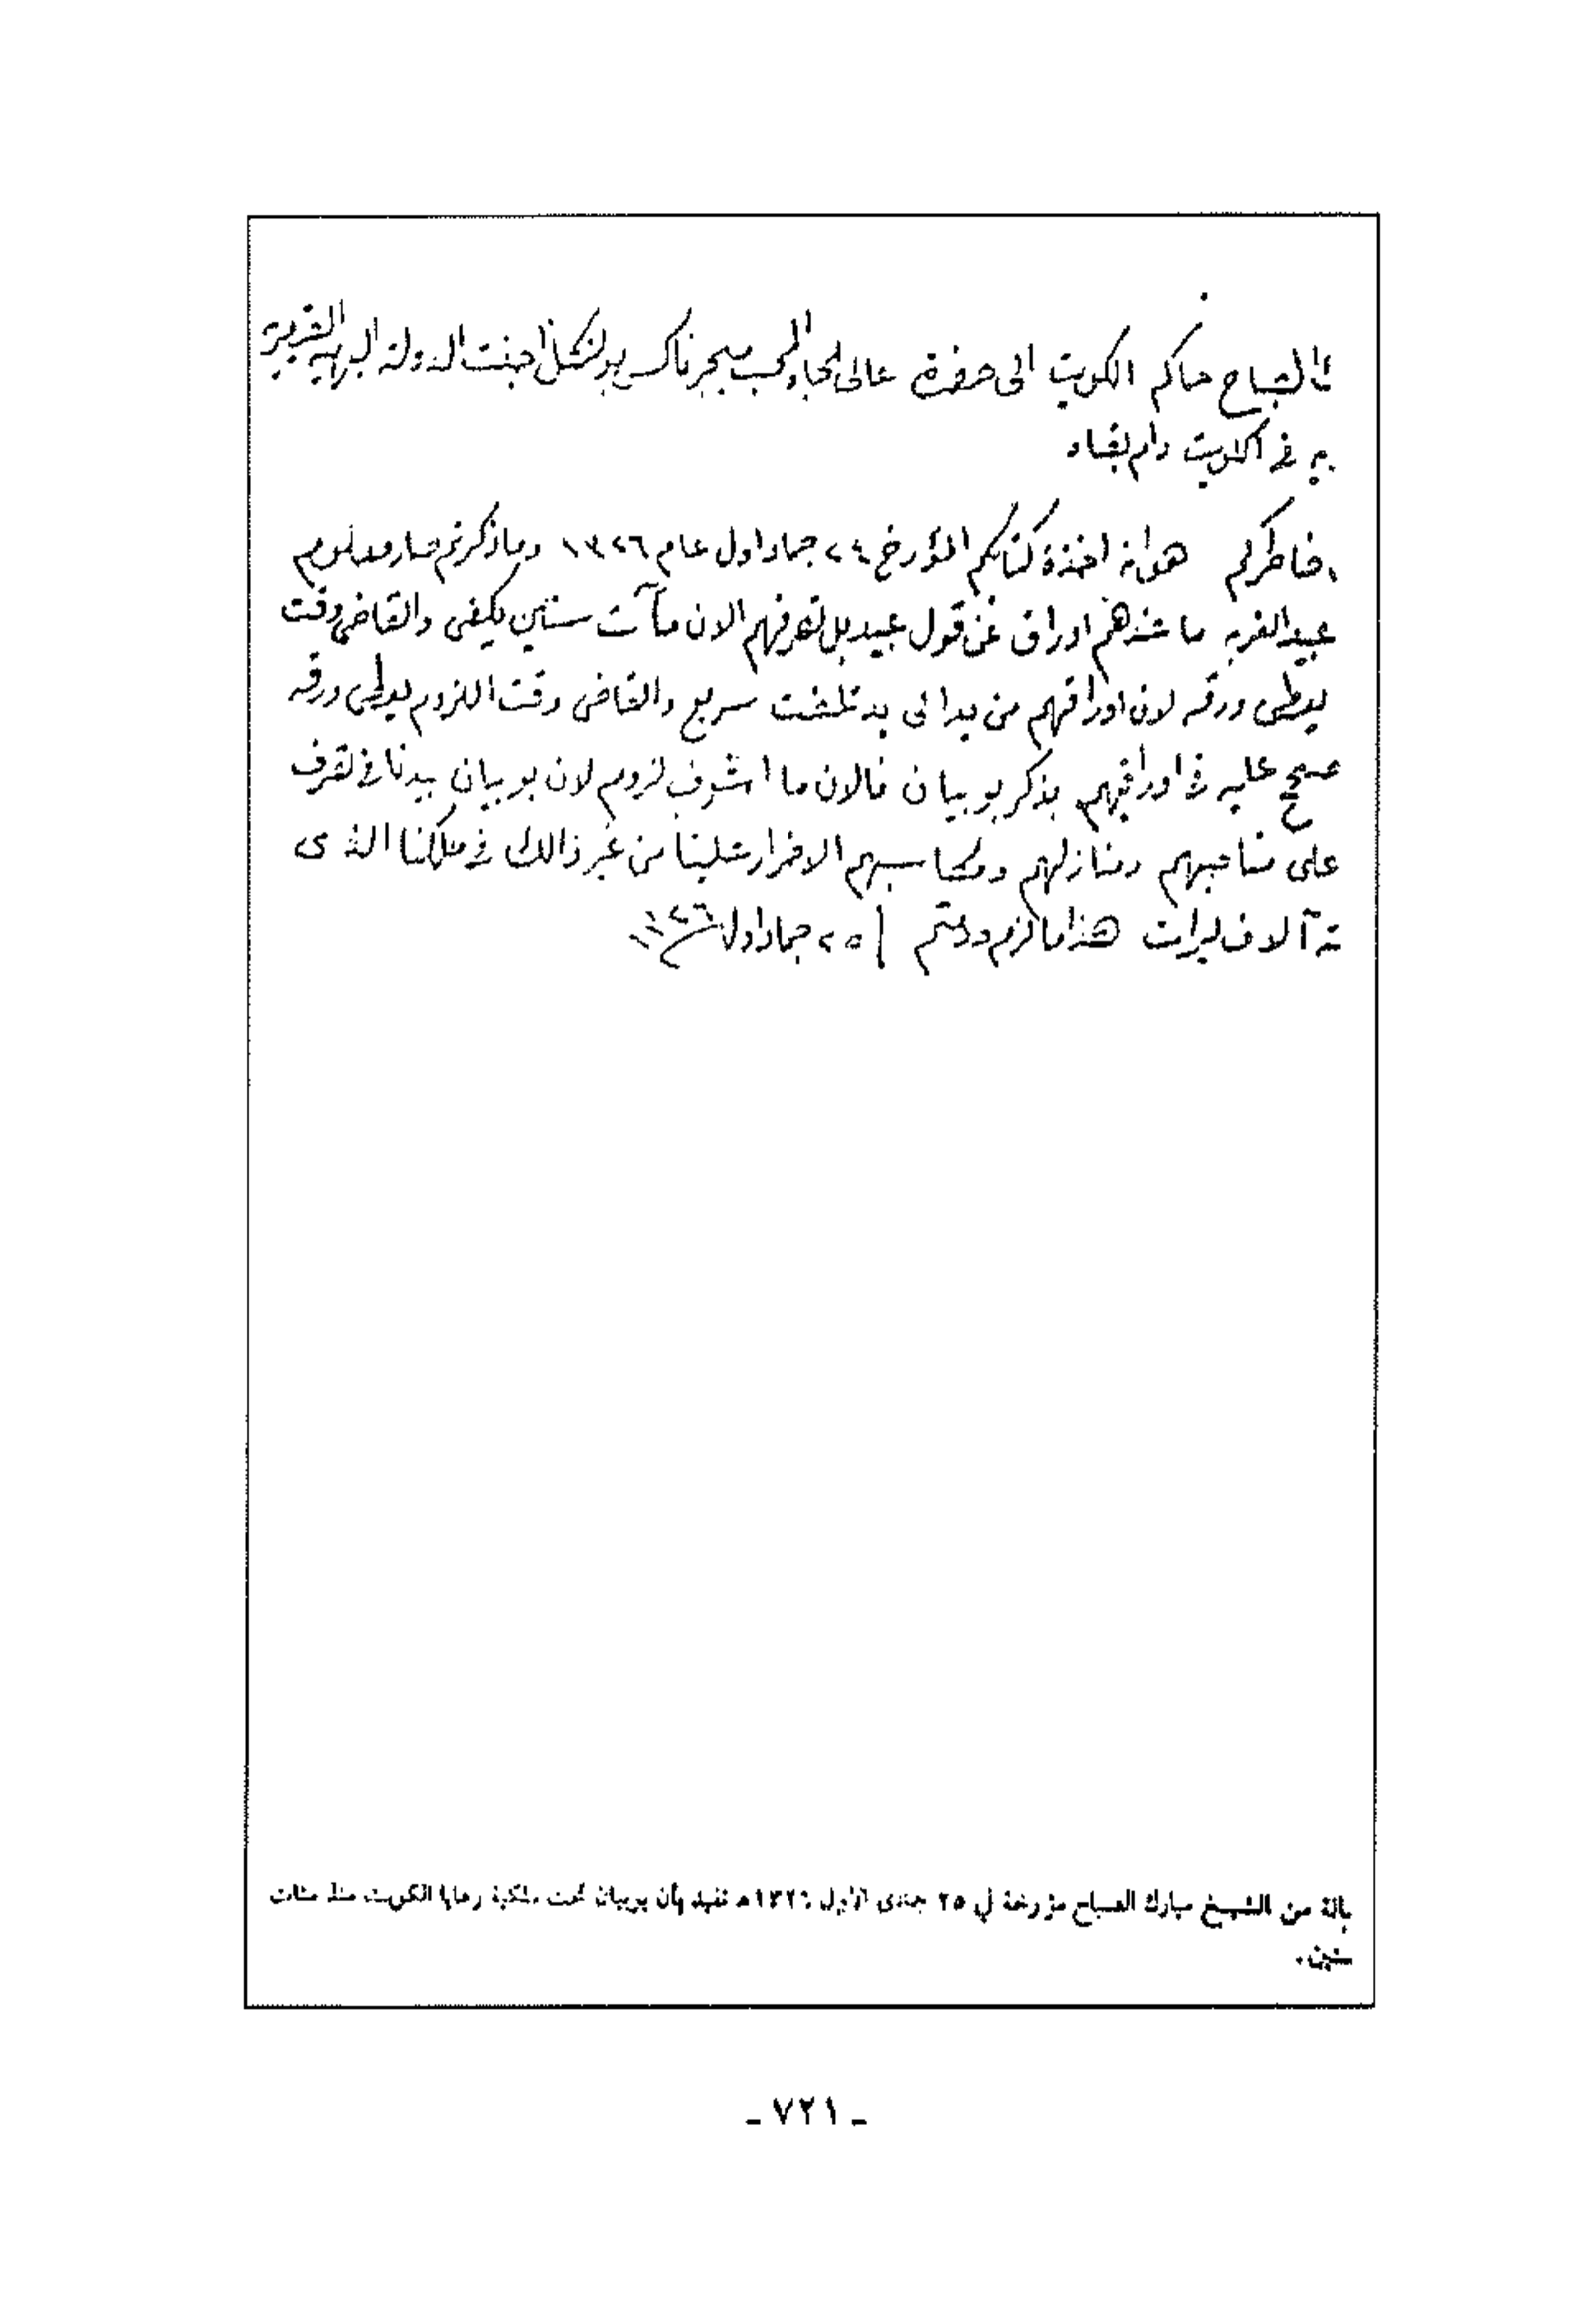 الصباح حاكم الكويت الى حضرة عالى الجاه المحب ميجر ناكس بولتكل اجنت الدولة البهيه
في الكويت دام بقاه
خاطركم هو انه اخذة كتابكم المؤرخ ٢٤ جماد اول عام ١٣٢٦ وما ذكرتم صار معلوم
عبيد ما عندهم اوراق عن قول عبيد بل تعرفهم الان مآت سنين يكفى والقاضى وقت
يعطى ورقه لان اوراقهم من يد الى يد تلفت سريع والقاضى وقت اللزوم يعطى ورقه
صحح عليه في اوراقهم بذكر بوبيان فالان ما اشوف لزوم لان بوبيان بيدنا في تصرف
على مناصبهم ومنازلهم ومكاسبهم الاضرار علينا من غير ذالك في ملكنا الذى
آلاف ليرات هذا ما لزم ودمتم ٢٥ جماد اول ١٣٢٦
من الشيخ مبارك الصباح مؤرخة في ٢٥ جمادى الأول ١٣٢٦هـ تفيد بأن بوبيان تحت ملكية رعايا الكويت منذ مئات
سنين .
ـ ٧٢١ ـ